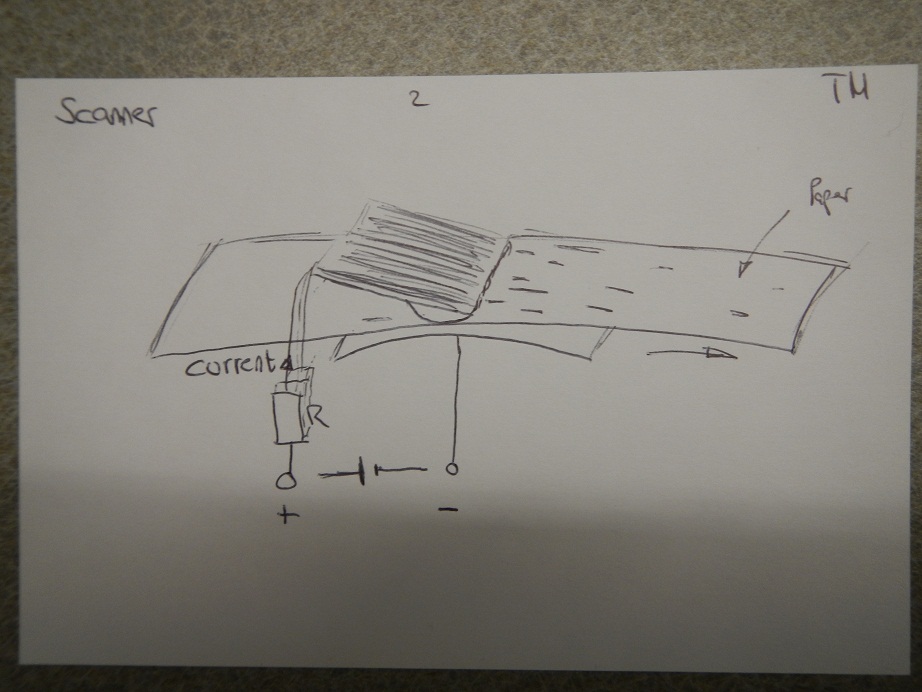 Scanner
2
TM
Paper
Current
R
+
-